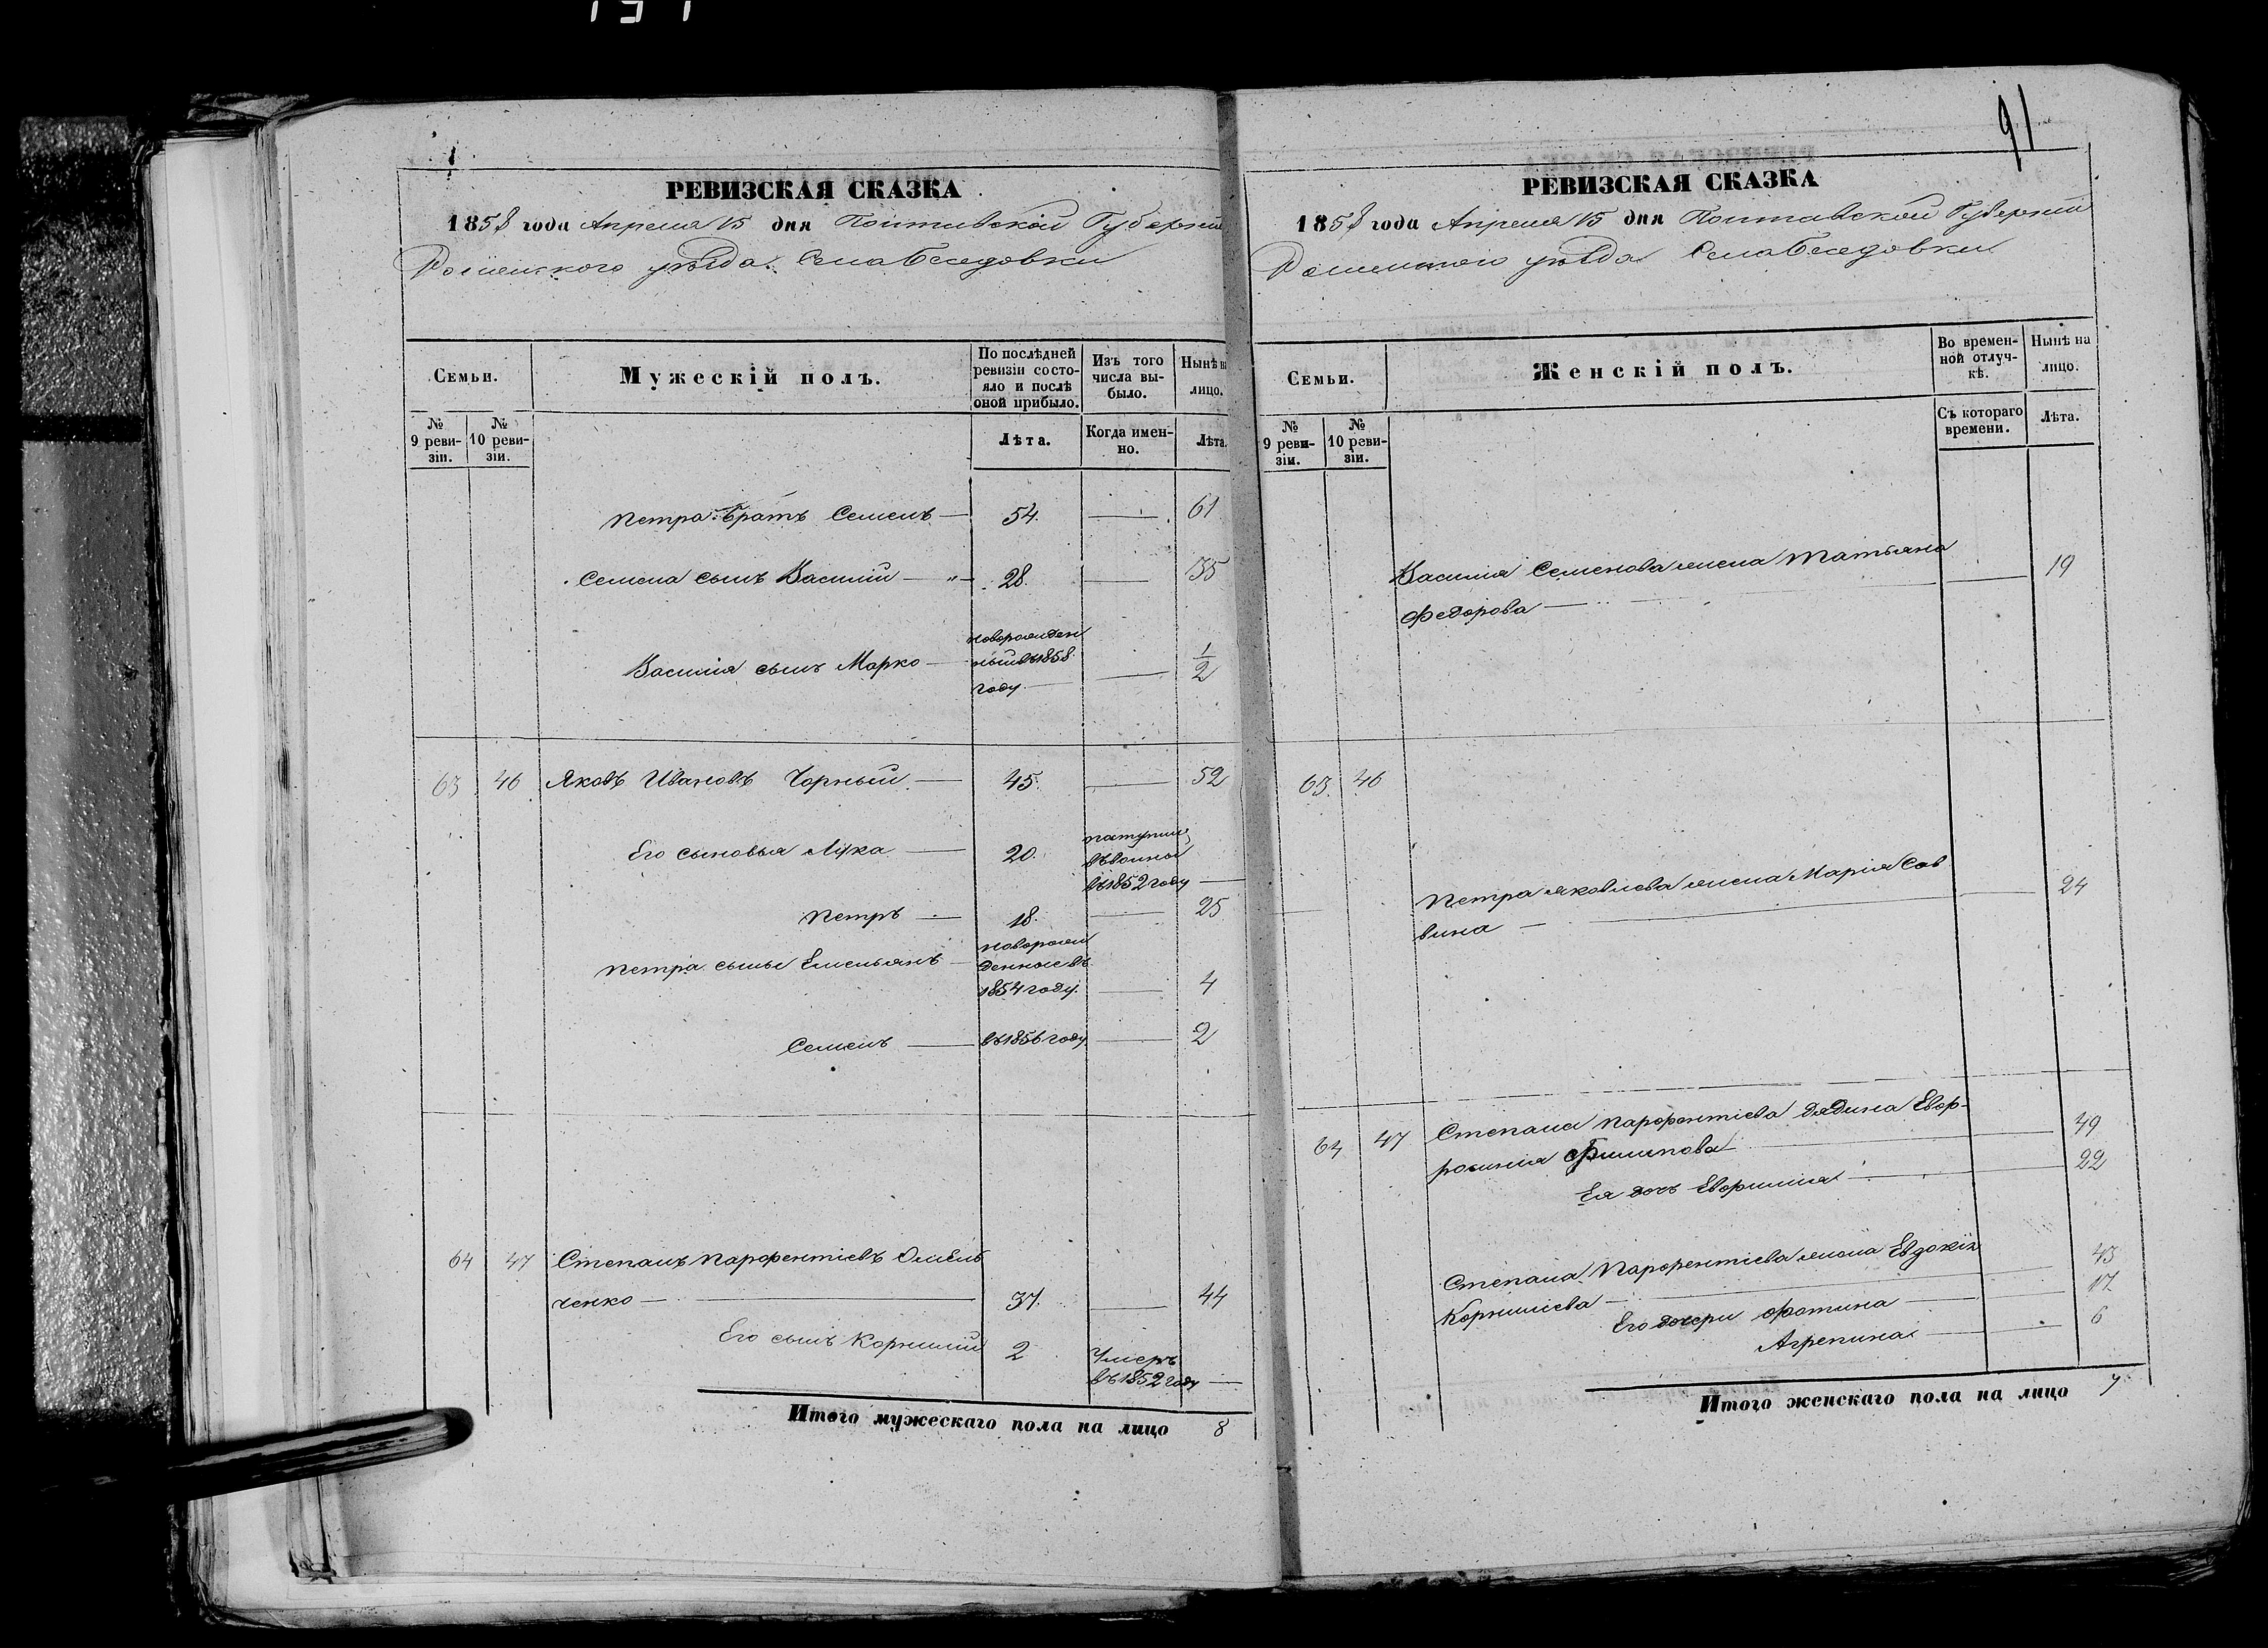 РЕВИЗСКАЯ СКАЗКА
1858 года Апреля 15 дня Полтавской Губерніи
Роменского уѣзда Села Беседовки
Семьи.
Мужескій полъ.
По послѣдней ревизіи состо-
яло и послѣ
оной прибыло.
Изъ того
числа вы-
было.
Нынѣ на
лицо.
№
9 реви-
зіи.
№
10 реви-
зіи.
Лѣта.
Когда имен-
но.
Лѣта.
Петра братъ Семенъ 54. 61
Семена сынъ Василий 28. 35
Василия сынъ Марко
новорожден
ный въ 1858
году
1/2
63 46 Яковъ Ивановъ Чорный 45. 52
Его сыновья Лука 20.
въ 1852 году
Петръ 18. 25
Петра сыны Емельянъ
новорож
денные въ
1854 году. 4
Семенъ въ 1856 году. 2
64 47 Степанъ Парфентіевъ Омель
ченко 37. 44
Его сынъ Корнилий 2
Умеръ
въ 1852 году
Итого мужескаго пола на лицо 8
91
РЕВИЗСКАЯ СКАЗКА
1858 года Апреля 15 дня Полтавской Губерніи
Роменского уѣзда Села Беседовки
Семьи.
Женскій полъ.
Во времен-
ной отлуч-
кѣ.
Нынѣ на
лицо.
№
9 реви-
зіи.
№
10 реви-
зіи.
Съ котораго
времени.
Лѣта.
Василия Семенова жена Татьяна
Федорова 19
63. 46
Петра Яковлева жена Марія Сав
вина 24
64 47 Степана Парфентіева дядина Евф-
росинія Филипова 49
Ея дочь Евфимия 22
Степана Парфентіева жена Евдокія
Корниліева 43
Его дочери Фотина 17
Агрепина 6
Итого женскаго пола на лицо 7